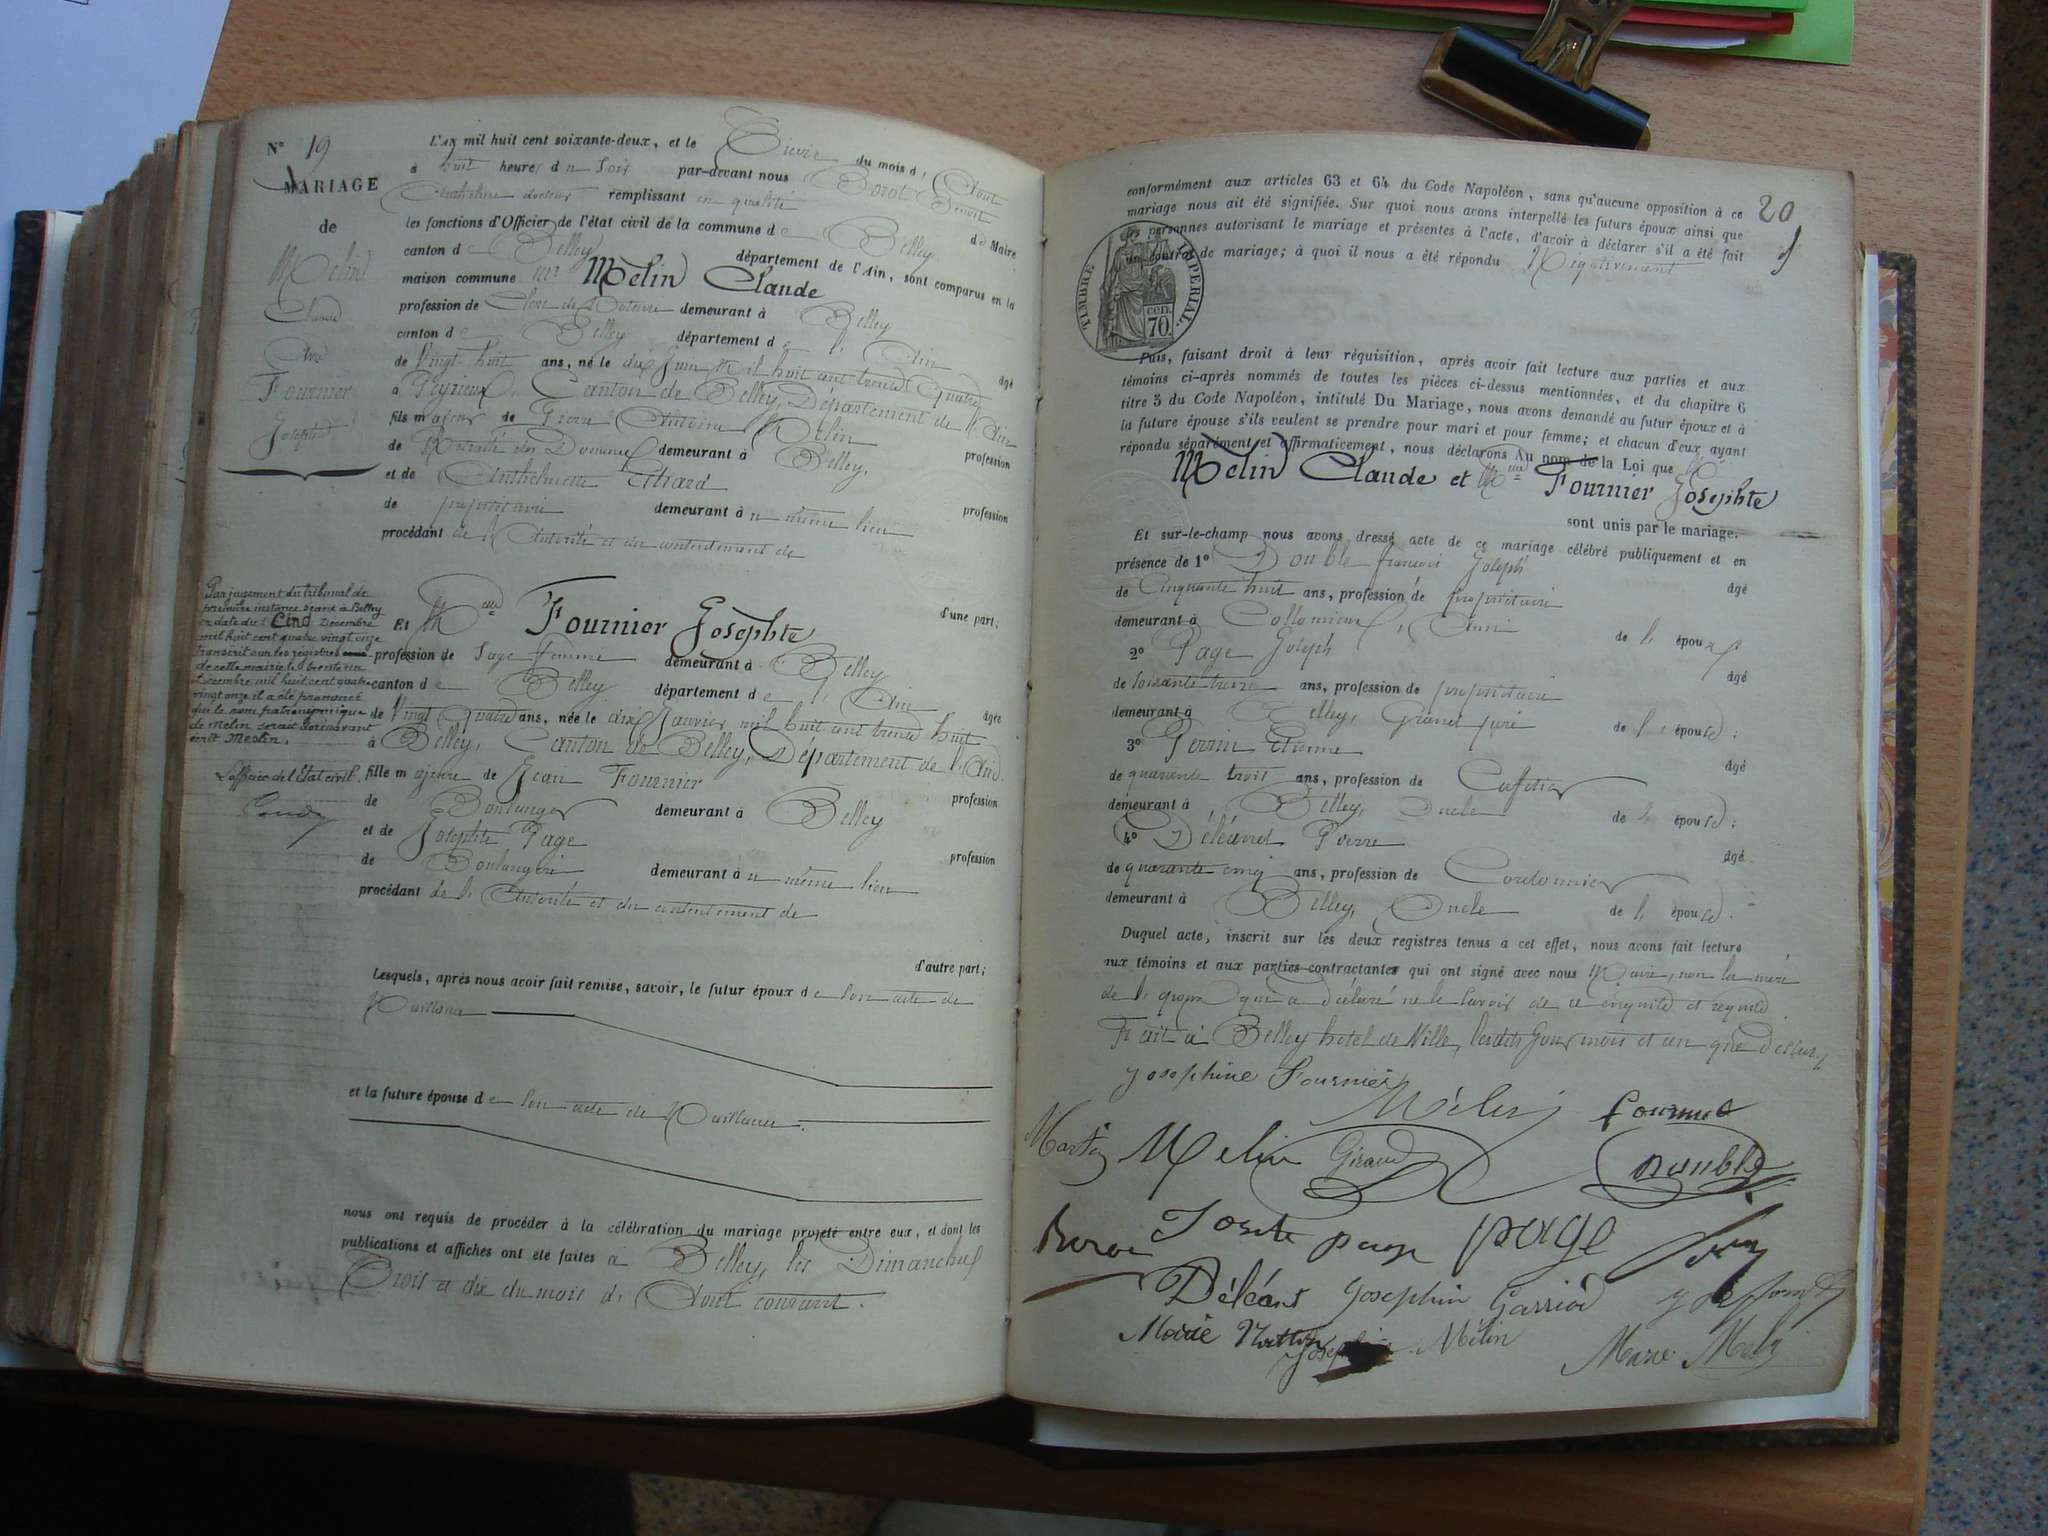 N° 19
MARIAGE
de
Melin
Claude
Avec
Fournier
Josephte
L'An mil huit cent soixante-deux, et le Treize du mois d' Aout
à huit heures du Soir par-devant nous Borot Benoit
Anthelme docteur remplissant en qualité de Maire
les fonctions d'Officier de l'état civil de la commune de Belley
canton de Belley département de l'Ain, sont comparus en la
maison commune Mr Mèlin Claude
profession de Clerc de Notaire demeurant à Belley
canton de Belley département de l'Ain âgé
de Vingt huit ans, né le dix Juin Mil huit cent trente Quatre
à Peyrieux, Canton de Belley, Département de l'Ain
fils majeur de Pierre Antoine Melin profession
de Retraité des Douanes demeurant à Belley,
et de Anthelmette profession
de propriétaire demeurant à u même lieu
procédant de l'Autorité et du contentement de
d'une part;
Et Melle Fournier Josephte
profession de Sage femme demeurant à Belley
canton de Belley département de l'Ain âgée
de Vingt Quatre ans, née le dix Janvier mil huit cent trente huit
à Belley, Canton de Belley, Département de l'Ain.
fille majeure de Jean Fournier profession
de Boulanger demeurant à Belley
et de Josephte Page profession
de Boulangère demeurant à u même lieu
procédant de l'Autorité et du contentement de
d'autre part;
Par jugement du tribunal de
première instance séant à Belley
en date du Cinq Décembre
mil huit cent quatre vingt onze
transcrit sur les régistres
de cette mairie le trente un
Décembre mil huit cent quatre
vingt onze il a été prononcé
que le nom patronymique
de Melin serait dorénavant
écrit Meslin.
L'officier de l'Etat civil.
Lesquels, après nous avoir fait remise, savoir, le futur époux de son acte de
Naissance
et la future épouse de son acte de Naissance.
nous ont requis de procéder à la célébration du mariage projeté entre eux, et dont les
publications et affiches ont été faites à Belley, les Dimanches
Trois et dix du mois d' Aout courant.
20
conformément aux articles 63 et 64 du Code Napoléon, sans qu'aucune opposition à ce
mariage nous ait été signifiée. Sur quoi nous avons interpellé les futurs époux ainsi que
les personnes autorisant le mariage et présentes à l'acte, d'avoir à déclarer s'il a été fait
un contrat de mariage; à quoi il nous a été répondu Négativement
TIMBRE IMPERIAL.
cen.
70.
Puis, faisant droit à leur réquisition, après avoir fait lecture aux parties et aux
témoins ci-après nommés de toutes les pièces ci-dessus mentionnées, et du chapitre 6
titre 5 du Code Napoléon, intitulé Du Mariage, nous avons demandé au futur époux et à
la future épouse s'ils veulent se prendre pour mari et pour femme; et chacun d'eux ayant
répondu séparément et affirmativement, nous déclarons Au nom de la Loi que
Mèlin Claude et Melle Fournier Josephte
sont unis par le mariage.
Et sur-le-champ nous avons dressé acte de ce mariage célébré publiquement et en
présence de 1° Double françois Joseph âgé
de Cinquante huit ans, profession de propriétaire
demeurant à Collomieux, Ami de l' époux
2° Page Joseph âgé
de soixante treize ans, profession de propriétaire
demeurant à Belley, Grand père de l' épouse;
3° Perrin Etienne âgé
de quarante trois ans, profession de Cafetier
demeurant à Belley, Oncle de l' épouse;
4° Déléand Pierre âgé
de quarante cinq ans, profession de Cordonnier
demeurant à Belley, Oncle de l' épouse.
Duquel acte, inscrit sur les deux registres tenus à cet effet, nous avons fait lecture
aux témoins et aux parties contractantes qui ont signé avec nous Maire, non la mère
de l'époux qui a déclaré ne le savoir de ce enquise et requise.
Fait à Belley hotel de Ville, lesdits Jour mois et an que dessus
Josephine Fournier Mélin fournié
Martin Melin Giraud Double
Josete page page
Déléant Josephin Garriod
Marie Josephine Mélin Marie Melin